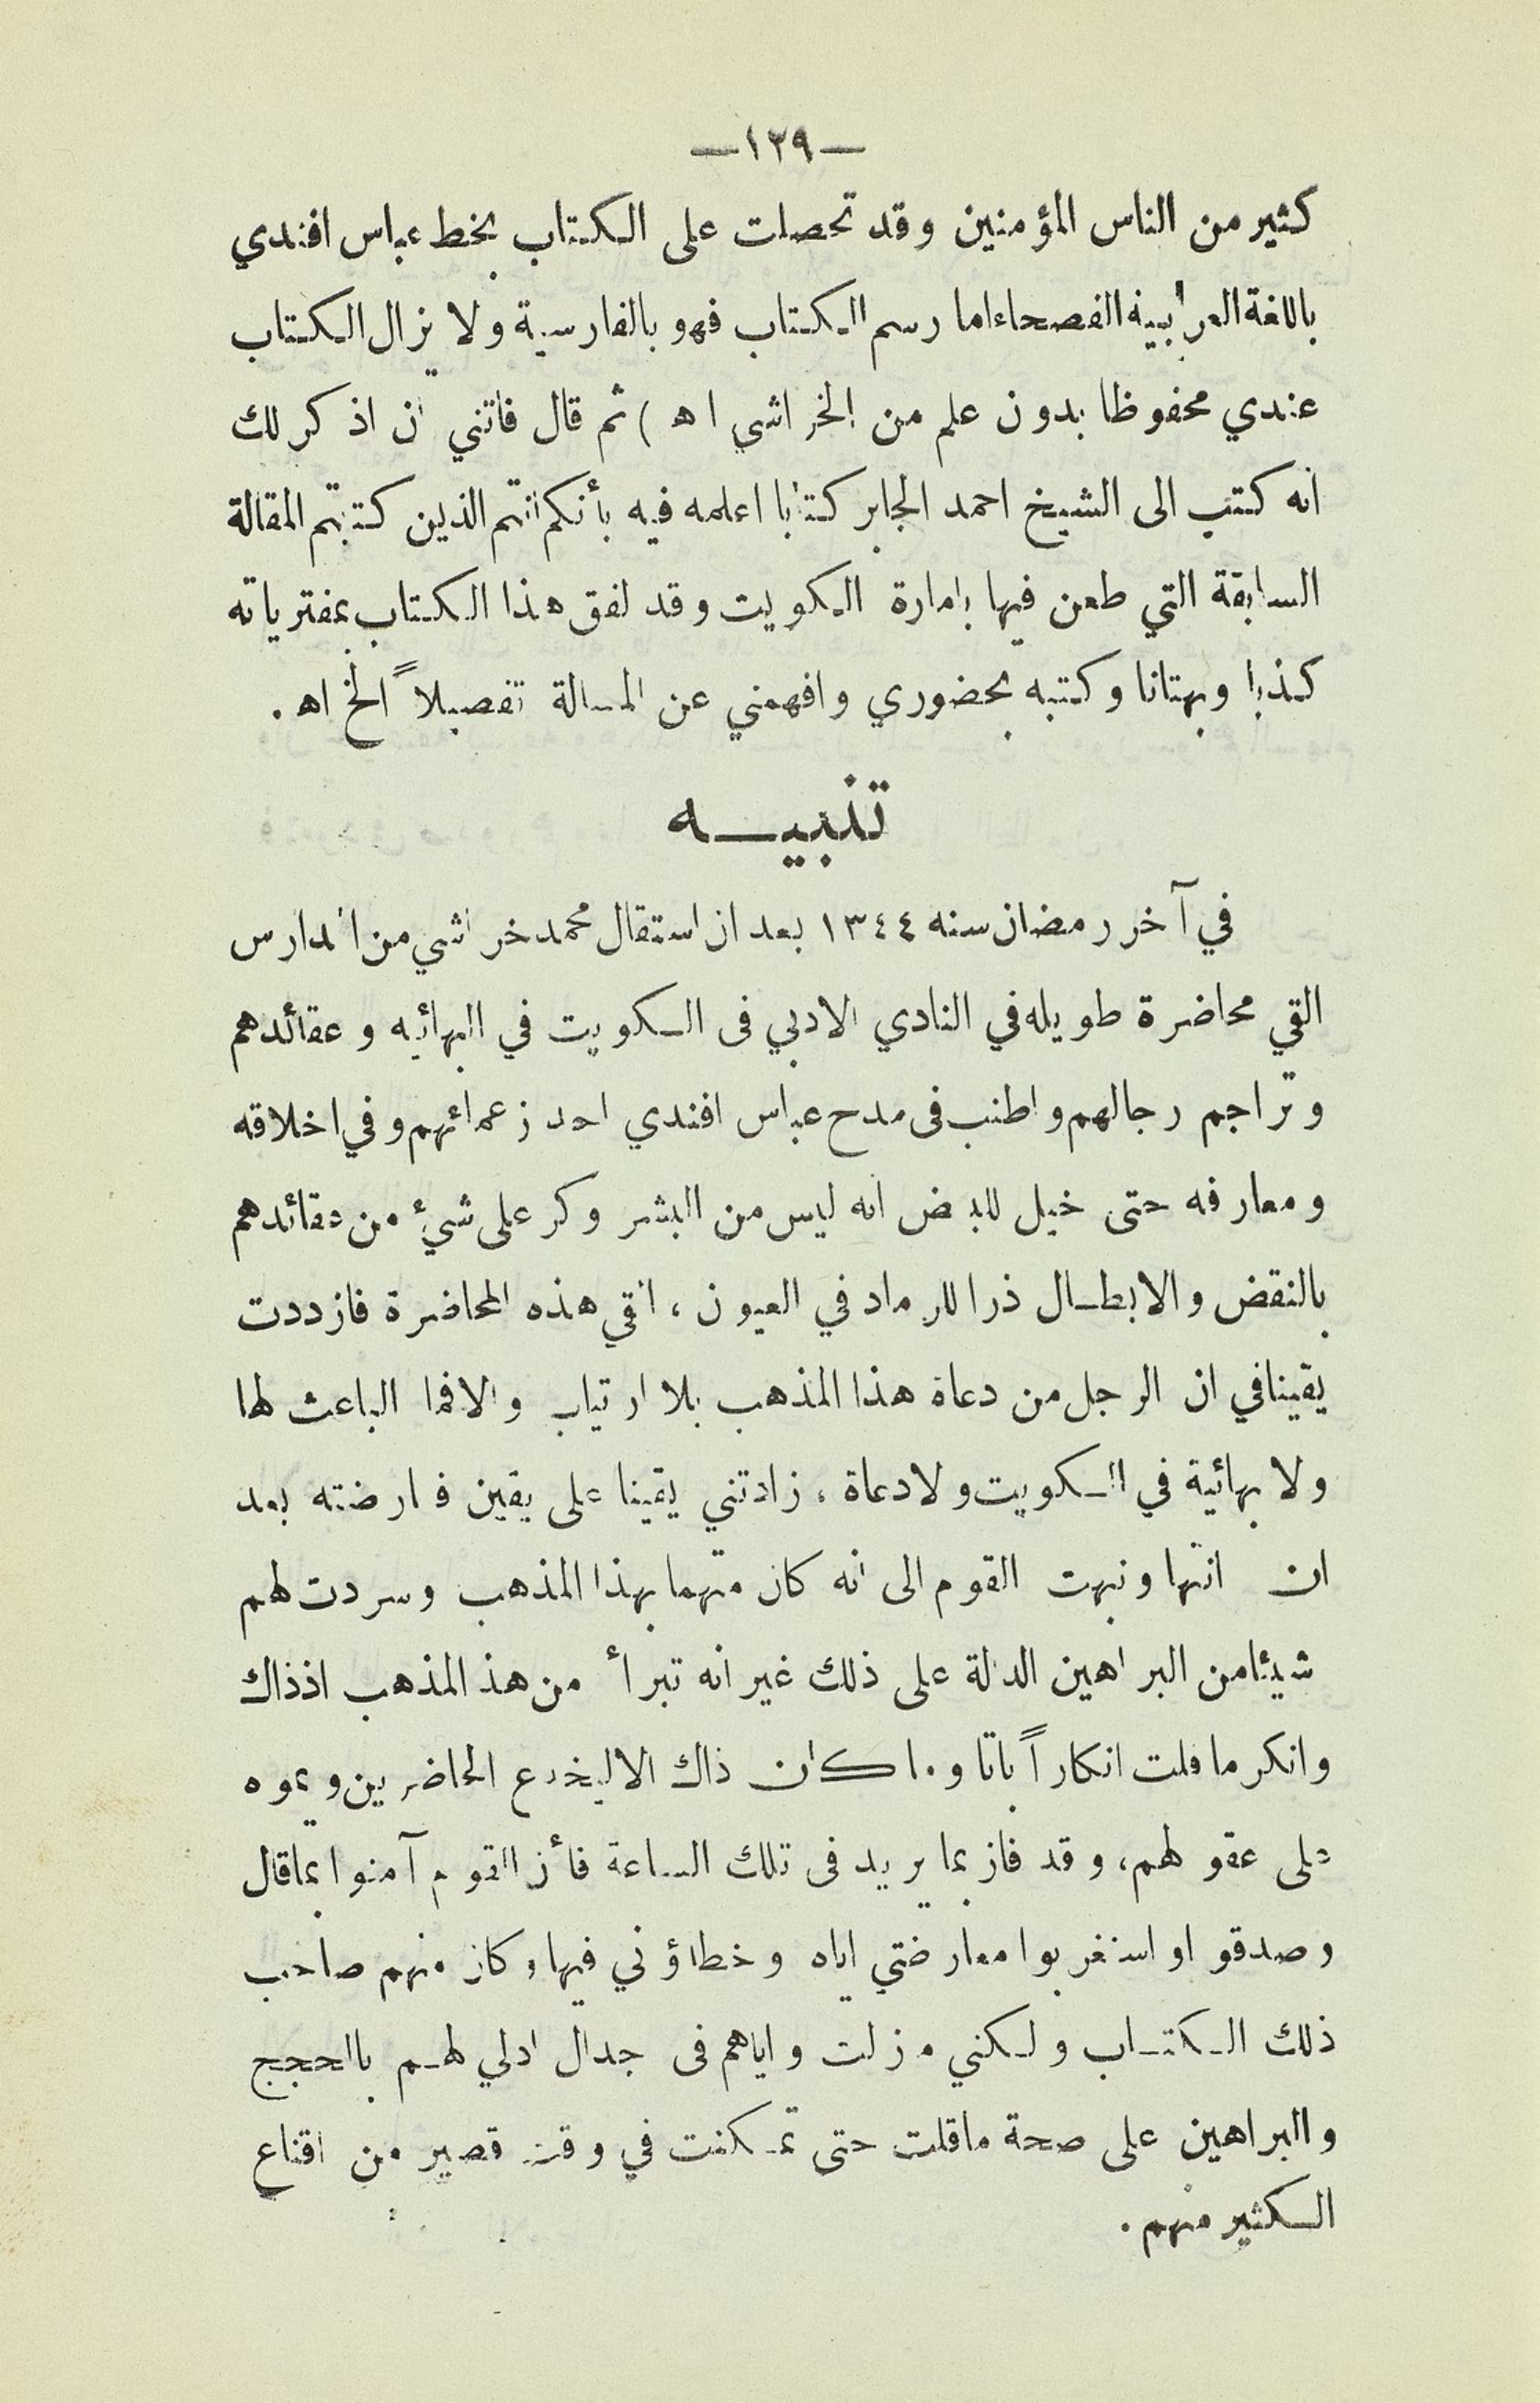 —١٢٩—
كثير من الناس المؤمنين وقد تحصلت على الكتاب بخط عباس افندي
باللغة العرابية الفصحاء اما رسم الكتاب فهو بالفارسية ولا يزال الكتاب
عندي محفوظا بدون علم من الخراشي اه ) ثم قال فاتني ان اذكر لك
انه كتب الى الشيخ احمد الجابر كتابا اعلمه فيه بأنكم انتم الذين كتبتم المقالة
السابقة التي طعن فيها بامارة الكويت وقد لفق هذا الكتاب بمفترياته
كذبا وبهتانا وكتبه بحضوري وافهمني عن المسالة تفصيلاً الخ اه .
تنبيـــه
في آخر رمضان سنه ١٣٤٤ بعد ان استقال محمد خراشي من المدارس
القي محاضرة طويله في النادي الادبي فى الكويت في البهائيه وعقائدهم
وتراجم رجالهم واطنب فى مدح عباس افندي احد زعمائهم وفي اخلاقه
ومعارفه حتى خيل للبعض انه ليس من البشر وكر على شيءٔ من عقائدهم
بالنقض والابطال ذرا للرماد في العيون ، القي هذه المحاضرة فازددت
يقينا في ان الرجل من دعاة هذا المذهب بلا ارتياب والا فما الباعث لها
ولا بهائية في الكويت ولا دعاة ، زادتني يقينا على يقين فعارضته بعد
ان انتها ونبهت القوم الى انه كان متهما بهذا المذهب وسردت لهم
شيئا من البراهين الدالة على ذلك غير انه تبرأ من هذ المذهب اذذاك
وانكر ما قلت انكاراً باتا وما كان ذاك الا ليخدع الحاضرين ويموه
على عقولهم، وقد فاز بما يريد فى تلك الساعة فأن القوم آمنوا بما قال
وصدقو او استغربوا معارضتي اياه وخطاؤني فيها وكان منهم صاحب
ذلك الكتاب ولكني مزلت واياهم فى جدال ادلي لهم باالحجج
والبراهين على صحة ماقلت حتى تمكنت في وقت قصير من اقناع
الكثير منهم .